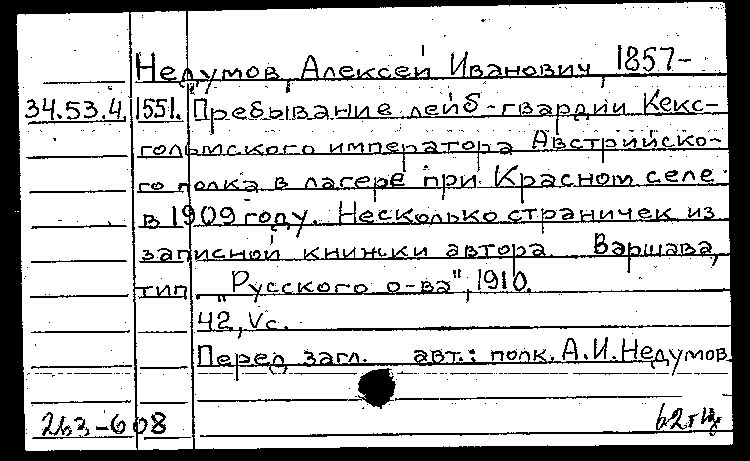 Недумов, Алексей Иванович, 1857-
34.53.4. 1551. Пребывание лейб-гвардии Кекс-
гольмского императора Австрийско-
го полка в лагере при Красном селе
в 1909 году. Несколько страничек из
записной книжки автора. Варшава,
тип. "Русского о-ва", 1910.
42, Vс.
Перед загл. авт.: полк. А.И.Недумов.
263-608